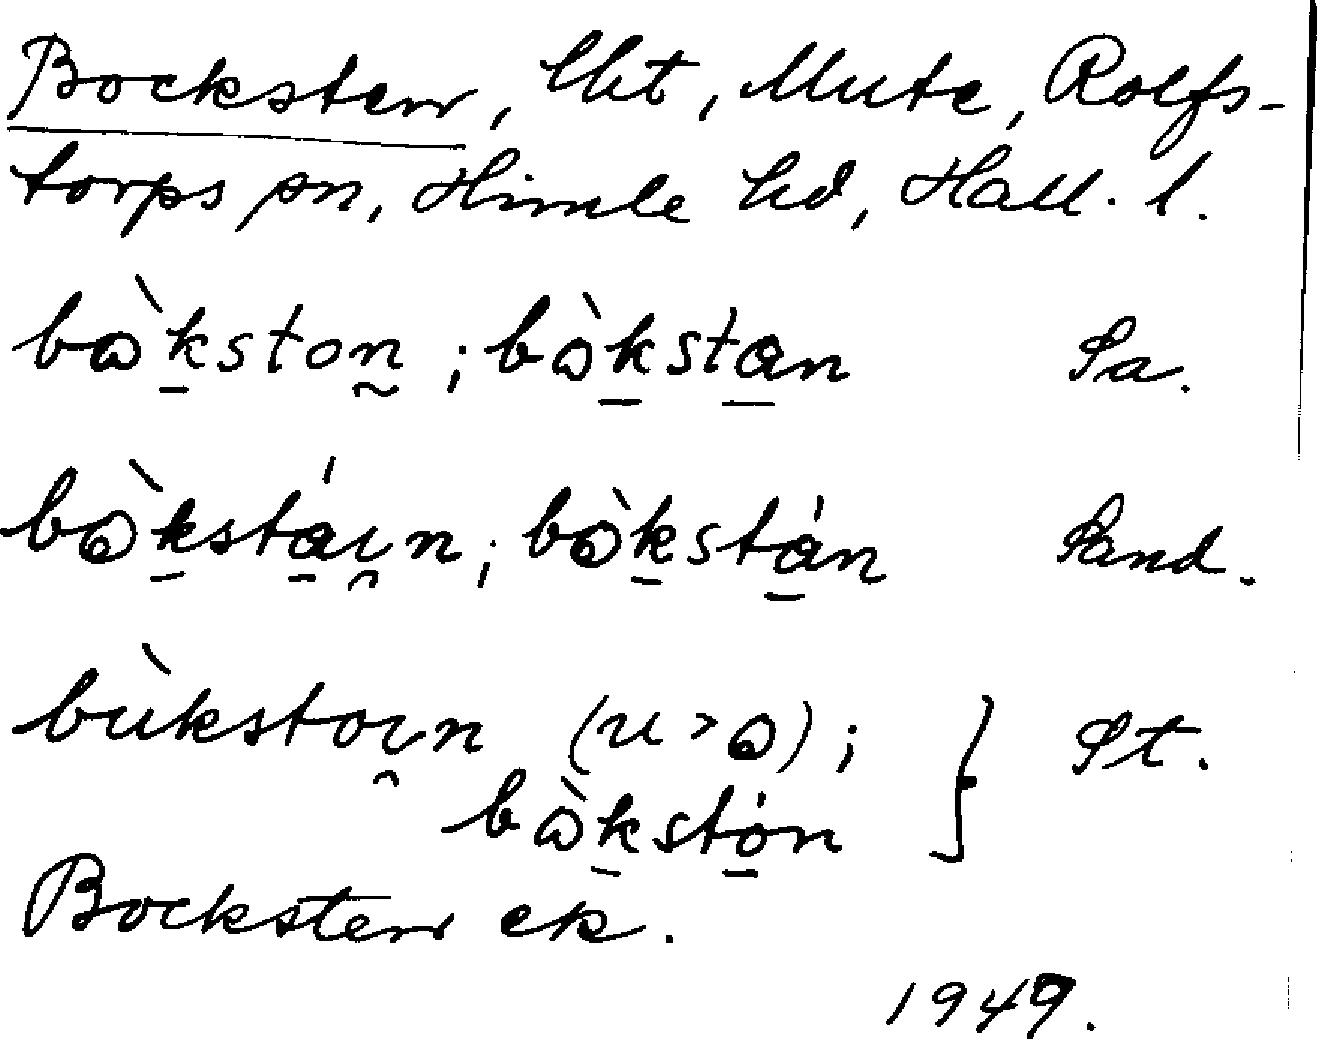 Bocksten, lht, Mute, Rolfs-
torps sn, Himle hd, Hall. l.
bò̀kston ; bòkstan Sa.
bòkstáın ; bòkstán Sand.
bùkstoın (u > o) ;
bòkstón } St.
Bocksten ek.
1949.